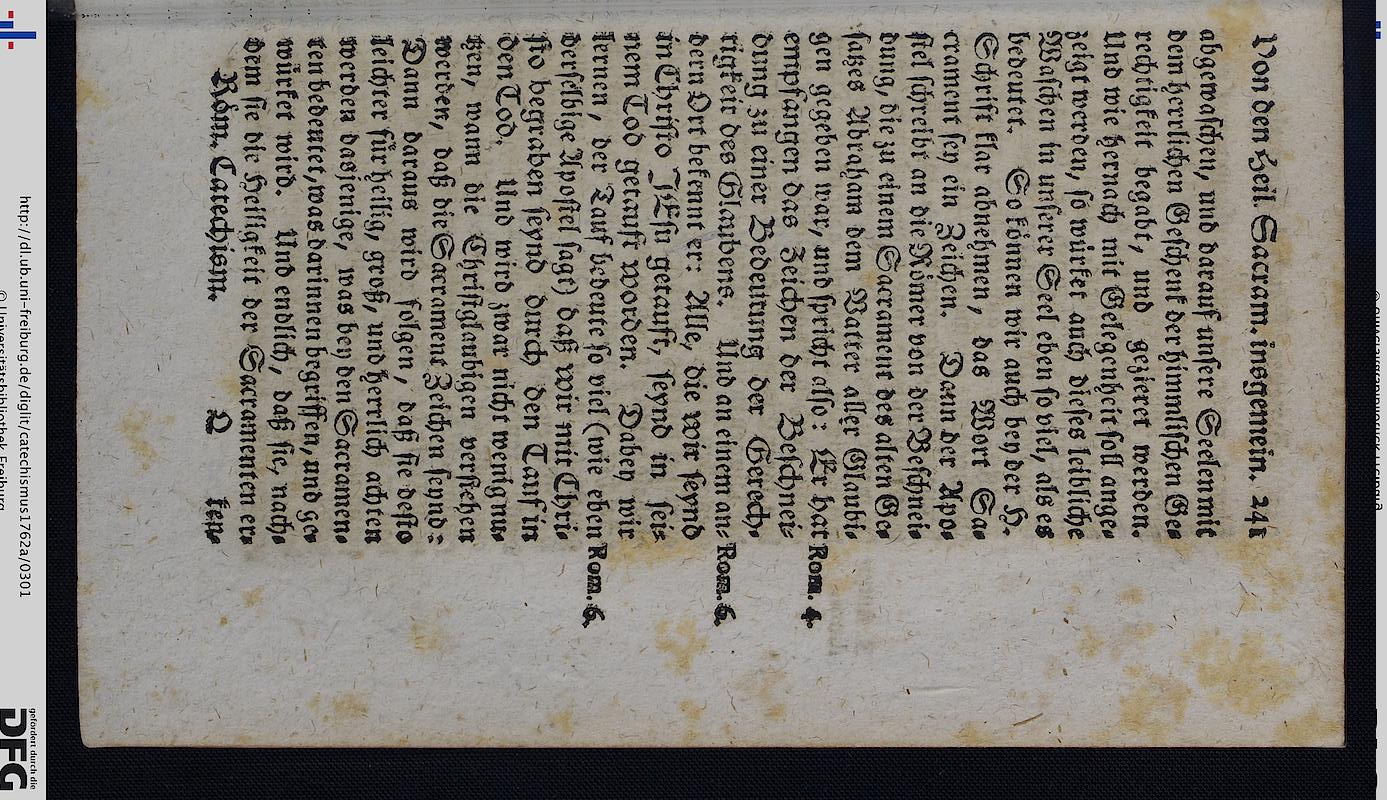 Von den Heil. Sacram. insgemein. 241
abgewaschen, und darauf unsere Seelen mit
dem herrlichen Geschenk der himmlischen Ge-
rechtigkeit begabt, und gezieret werden.
Und wie hernach mit Gelegenheit soll ange-
zeigt werden, so würket auch dieses leibliche
Waschen in unserer Seel eben so viel, als es
bedeutet. So können wir auch bey der H.
Schrift klar abnehmen, das Wort Sa-
crament sey ein Zeichen. Dann der Apo-
stel schreibt an die Römer von der Beschnei-
dung, die zu einem Sacrament des alten Ge-
satzes Abraham dem Vatter aller Glaubi-
gen gegeben war, und spricht also: Er hat Rom. 4.
empfangen das Zeichen der Beschnei-
dung zu einer Bedeutung der Gerech-
tigkeit des Glaubens. Und an einem an- Rom. 6.
dern Ort bekennt er: Alle, die wir seynd
in Christo JEsu getauft, seynd in sei-
nem Tod getauft worden. Dabey wir
lernen, der Tauf bedeute so viel (wie eben Rom. 6.
derselbige Apostel sagt) daß wir mit Chri-
sto begraben seynd durch den Tauf in
den Tod. Und wird zwar nicht wenig nu-
tzen, wann die Christglaubigen verstehen
werden, daß die Sacrament Zeichen seynd:
Dann daraus wird folgen, daß sie desto
leichter für heilig, groß, und herrlich achten
werden dasjenige, was bey den Sacramen-
ten bedeutet, was darinnen begriffen, und ge-
würket wird. Und endlich, daß sie, nach-
dem sie die Heiligkeit der Sacramenten er-
Röm. Catechism. Q ken-
http://dl.ub.uni-freiburg.de/diglit/catechismus1762a/0301
© Universitätsbibliothek Freiburg
gefördert durch die
DFG